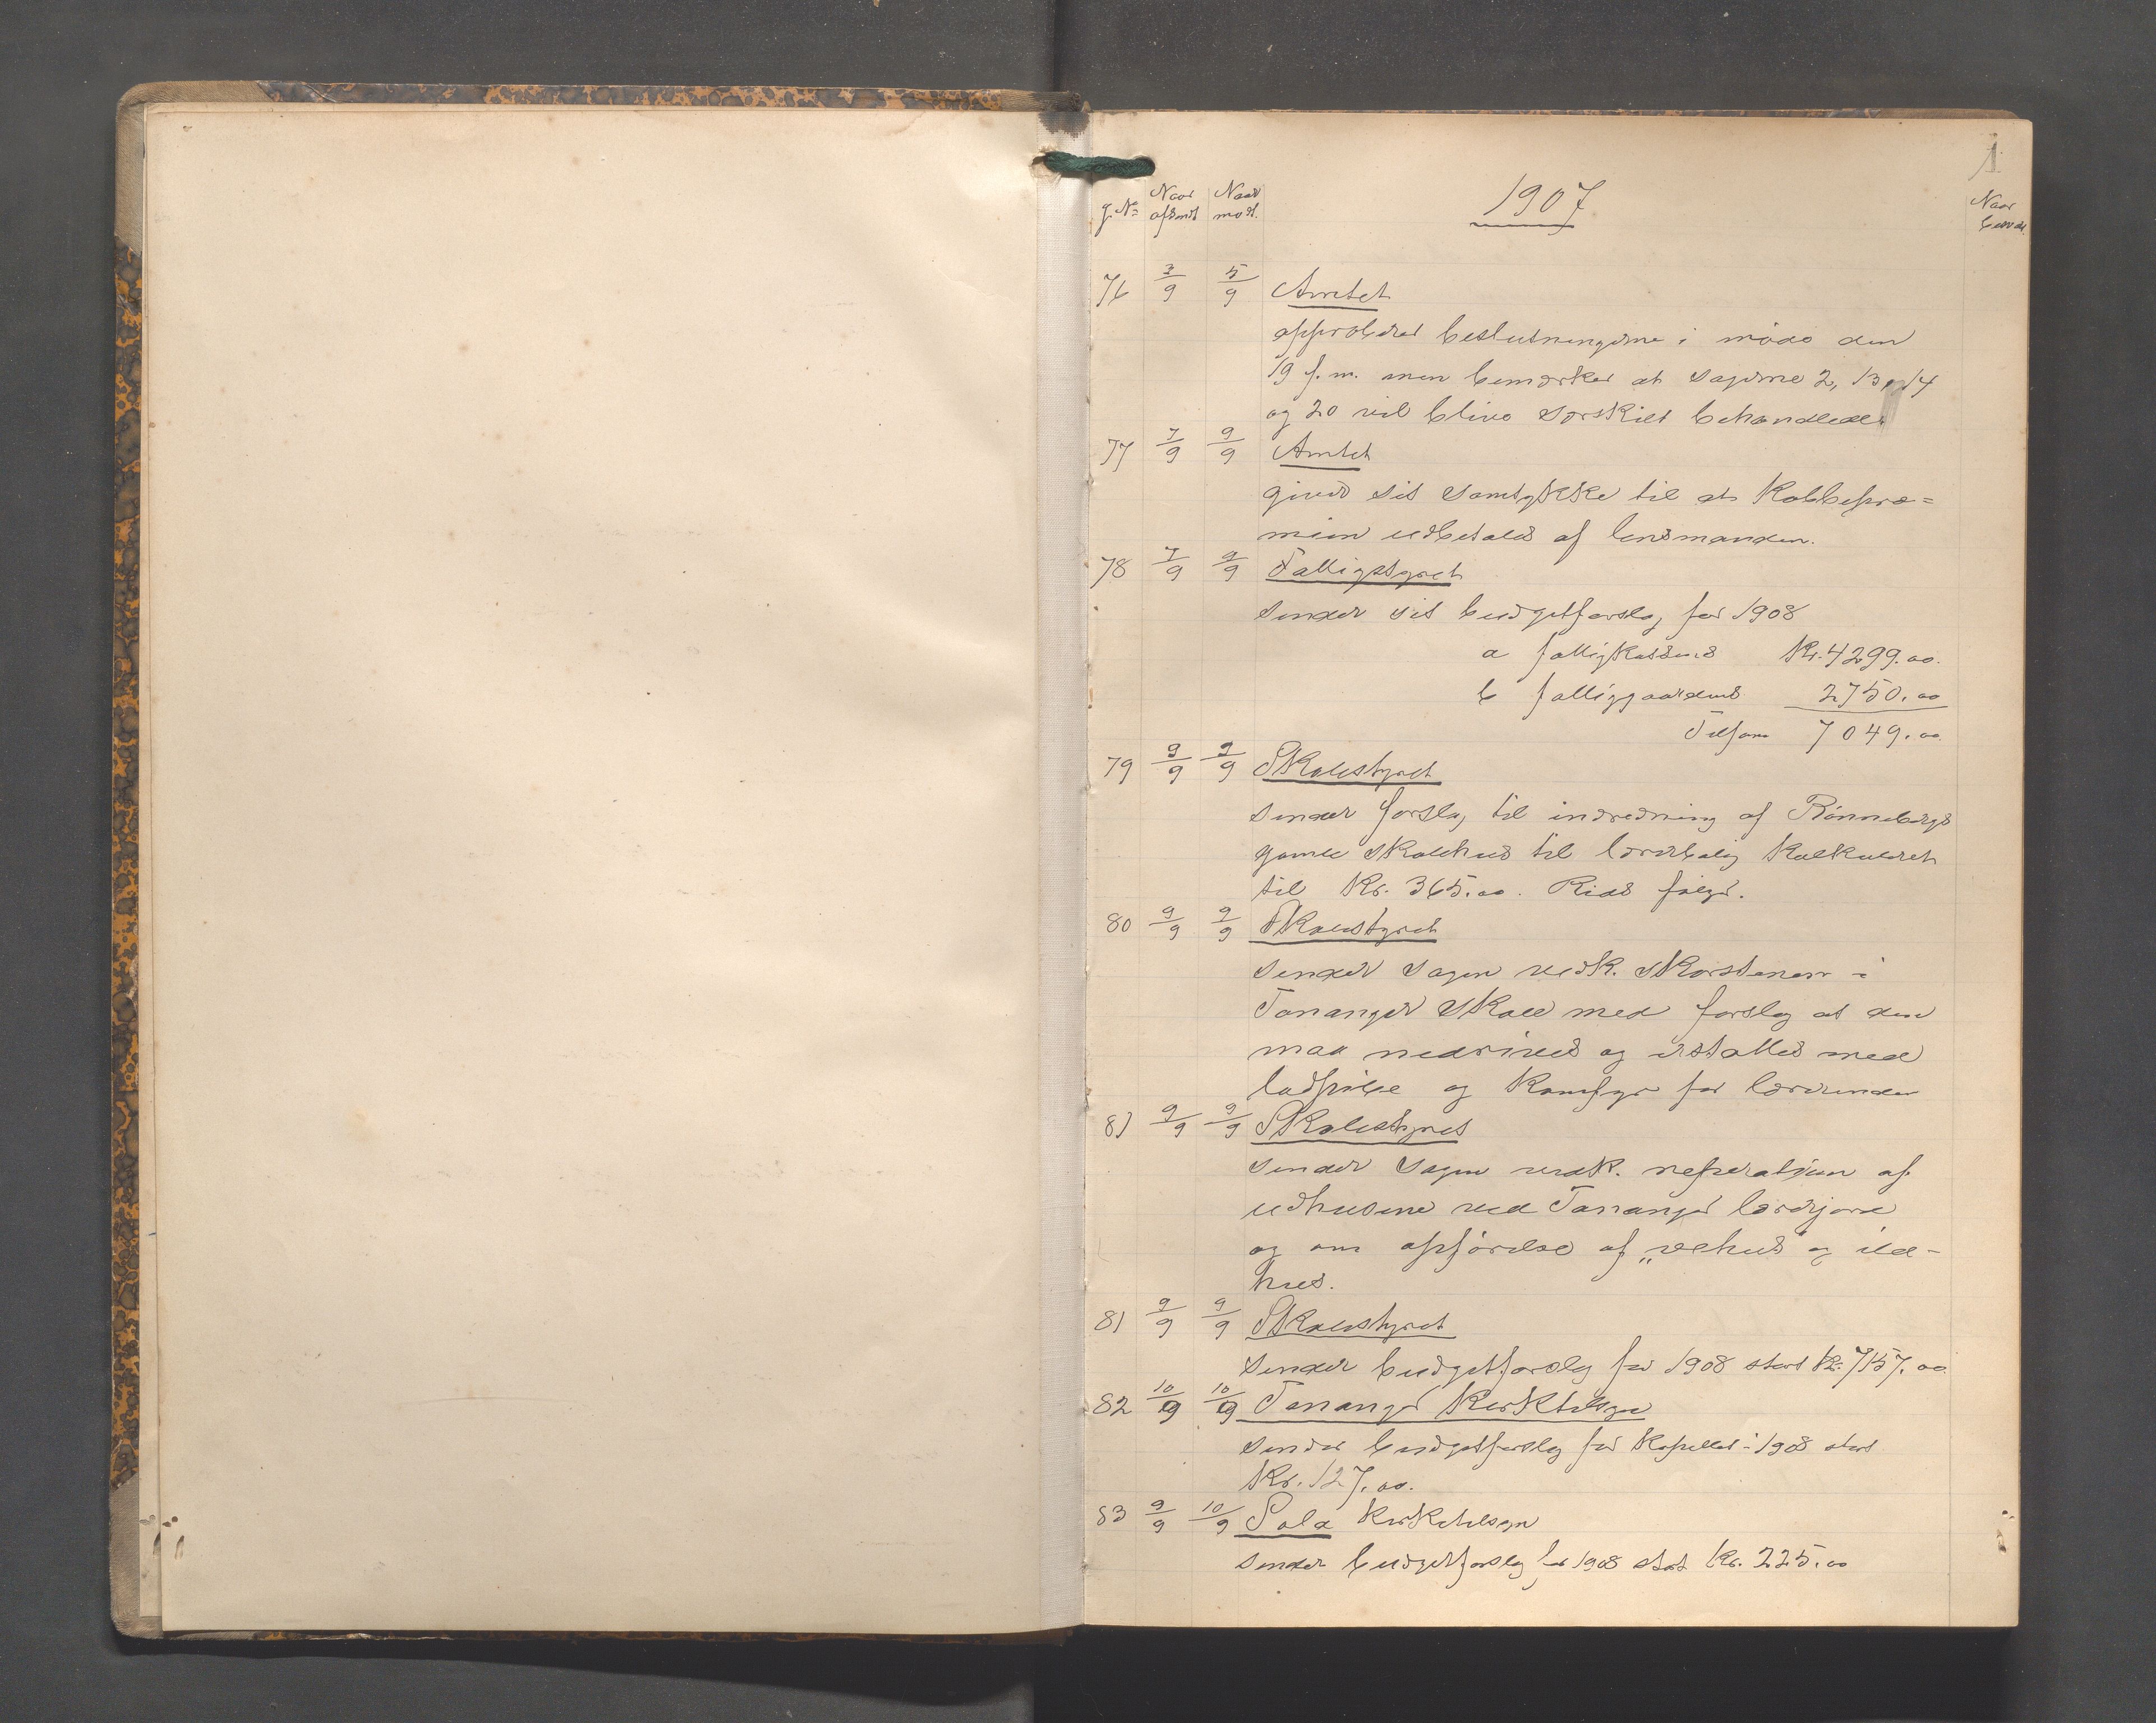 1
1907
J. No
Naar afsendt
Naar modt.
Naar besvar.
76 3/9 5/9 Amtet
approberer beslutningerne i møde den
19 f.m. men bemærker at sagerne 2, 13, 14
og 20 vil blive særskilt behandlede.
77 7/9 9/9 Amtet
giver sit samtykke til at Kobbepræ=
mien udbetales af lensmanden.
78 7/9 9/9 Fattigstyret
sender sit budgetforslag for 1908
a fattigkassens Kr. 4299.00.
b fattiggaardens 2750.00
Tilsam 7049.00
79 9/9 9/9 Skolestyret
sender forslag til indredning af Rønnebergs
gamle skolehus til lærerbolig kalkuleret
til Kr. 365.00. Rids følger.
80 9/9 9/9 Skolestyret
sender sagen vedk. skorstenen i
Tananger skole med forslag at den
maa nedrives og erstattes med
ladpibe og Komfyr for lærerinden
81 9/9 9/9 Skolestyret
sender sagen vedk. reperation af
udhusene ved Tananger lærerjord
og om opførelse af „vehus og ild-
hus.
81 9/9 9/9 Skolestyret
sender budgetforslag for 1908 stort Kr. 7157.00
82 10/9 10/9 Tananger Kirketilsyn
sender budgetforslag for Kapellet i 1908 stort
Kr. 127.00.
83 9/9 10/9 Sola Kirketilsyn
sender budgetforslag for 1908 stort Kr. 225.00